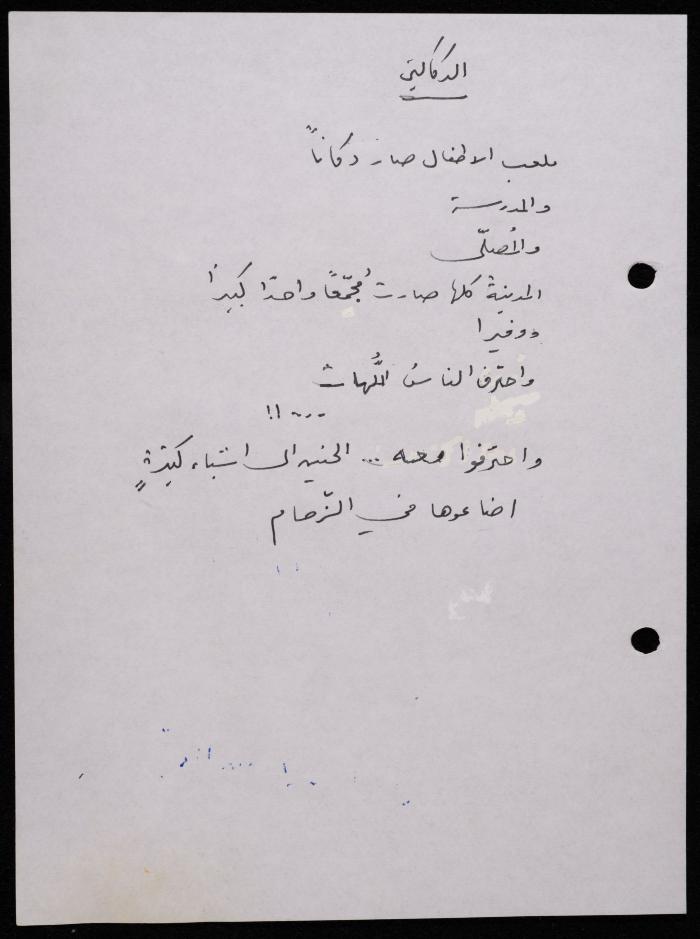 الدكاكين
ملعب الاطفال صار دكاناً
والمدرسة
والمُصلّى
المدينة كلها صارت مُجمّعًا واحدًا كبيرًا
ووفيرا
واحترف الناسُ اللُّهاث
...!!
واحترفوا معه... الحنين الى اشياء كثيرةٍ
اضاعوها في الزّحام